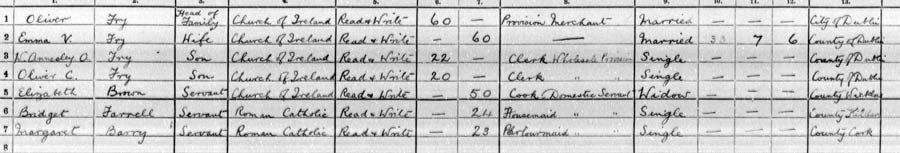 1. 2. 3. 4. 5. 6. 7. 8. 9. 10. 11. 12. 13.
1 Oliver Fry Head of Family Church of Ireland Read & Write 60 — Provision Merchant Married — — — City of Dublin
2 Emma V. Fry Wife Church of Ireland Read & Write — 60 — Married 33 7 6 County of Dublin
3 Annesley O. Fry Son Church of Ireland Read & Write 22 — Clerk Wholesale Provision Single — — — County of Dublin
4 Oliver C. Fry Son Church of Ireland Read & Write 20 — Clerk " " Single — — — County of Dublin
5 Elizabeth Brown Servant Church of Ireland Read & Write — 50 Cook Domestic Servant Widow — — — County
6 Bridget Farrell Servant Roman Catholic Read & Write — 24 Housemaid " " Single — — — County
7 Margaret Barry Servant Roman Catholic Read & Write — 23 Parlourmaid " " Single — — — County Cork
8